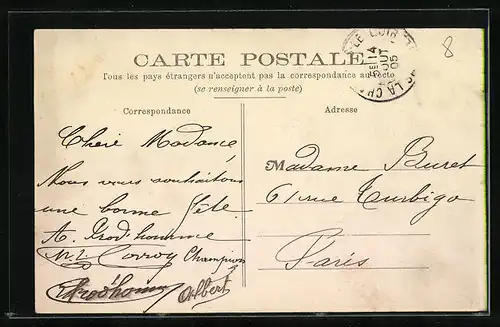 8
CARTE POSTALE
Tous les pays étrangers n'acceptent pas la correspondance au recto
(se renseigner à la poste)
Correspondance
Adresse
LA CH
14
AOUT
05
Chère Madame
Nous vous souhaitons
une bonne fête.
A. Prod'homme
Champion
Prod'homme
Albert
Madame Buret
61 rue Turbigo
Paris